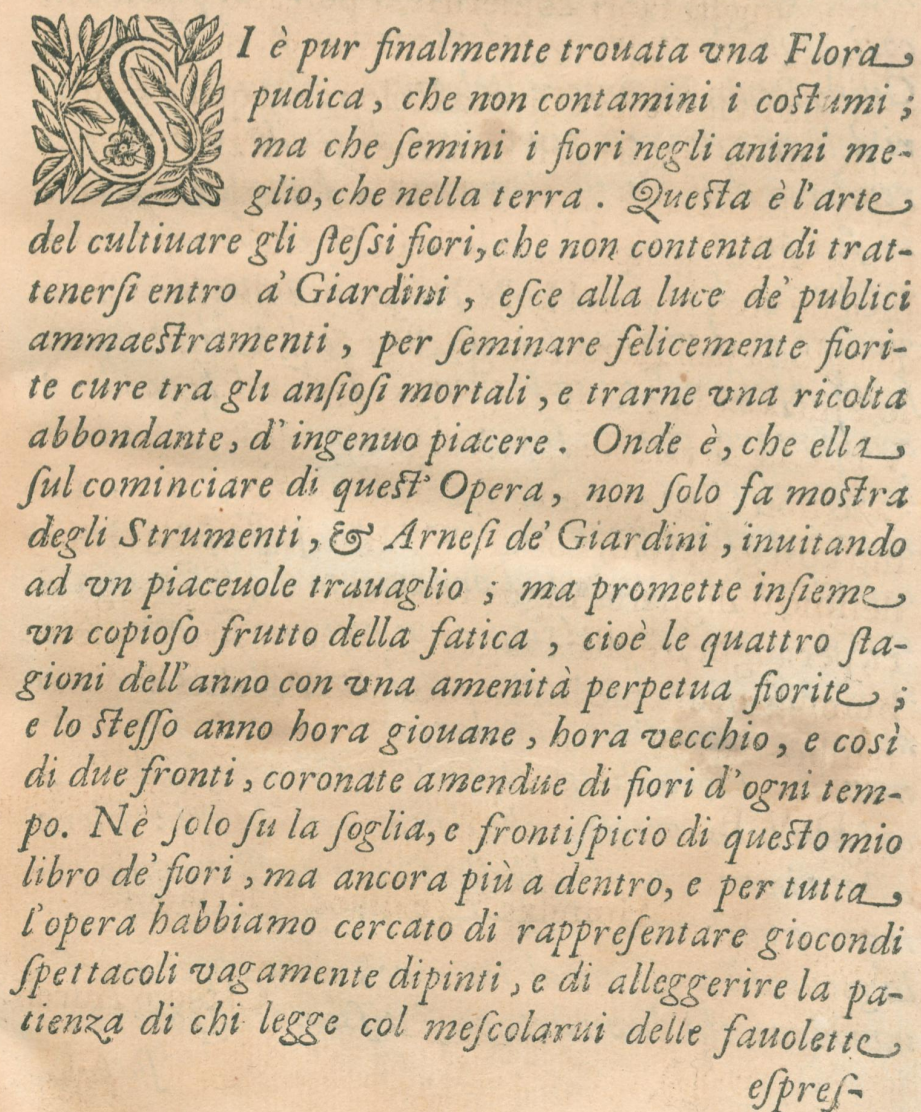 SI è pur finalmente trouata vna Flora
pudica, che non contamini i coſtumi ;
ma che ſemini i fiori negli animi me-
glio, che nella terra . Queſta è l'arte
del cultiuare gli ſteſsi fiori, che non contenta di trat-
tenerſi entro a' Giardini , eſce alla luce de' publici
ammaeſtramenti , per ſeminare felicemente fiori-
te cure tra gli anſioſi mortali , e trarne vna ricolta
abbondante, d' ingenuo piacere . Onde è, che ella
ſul cominciare di queſt' Opera, non ſolo fa moſtra
degli Strumenti, & Arneſi de' Giardini , inuitando
ad vn piaceuole trauaglio ; ma promette inſieme
vn copioſo frutto della fatica , cioè le quattro ſta-
gioni dell' anno con vna amenità perpetua fiorite ;
e lo ſteſſo anno hora giouane , hora vecchio, e così
di due fronti , coronate amendue di fiori d' ogni tem-
po. Nè ſolo ſu la ſoglia, e frontiſpicio di queſto mio
libro de' fiori , ma ancora più a dentro, e per tutta
l'opera habbiamo cercato di rappreſentare giocondi
ſpettacoli vagamente dipinti , e di alleggerire la pa-
tienza di chi legge col meſcolarui delle fauolette
eſpreſ-